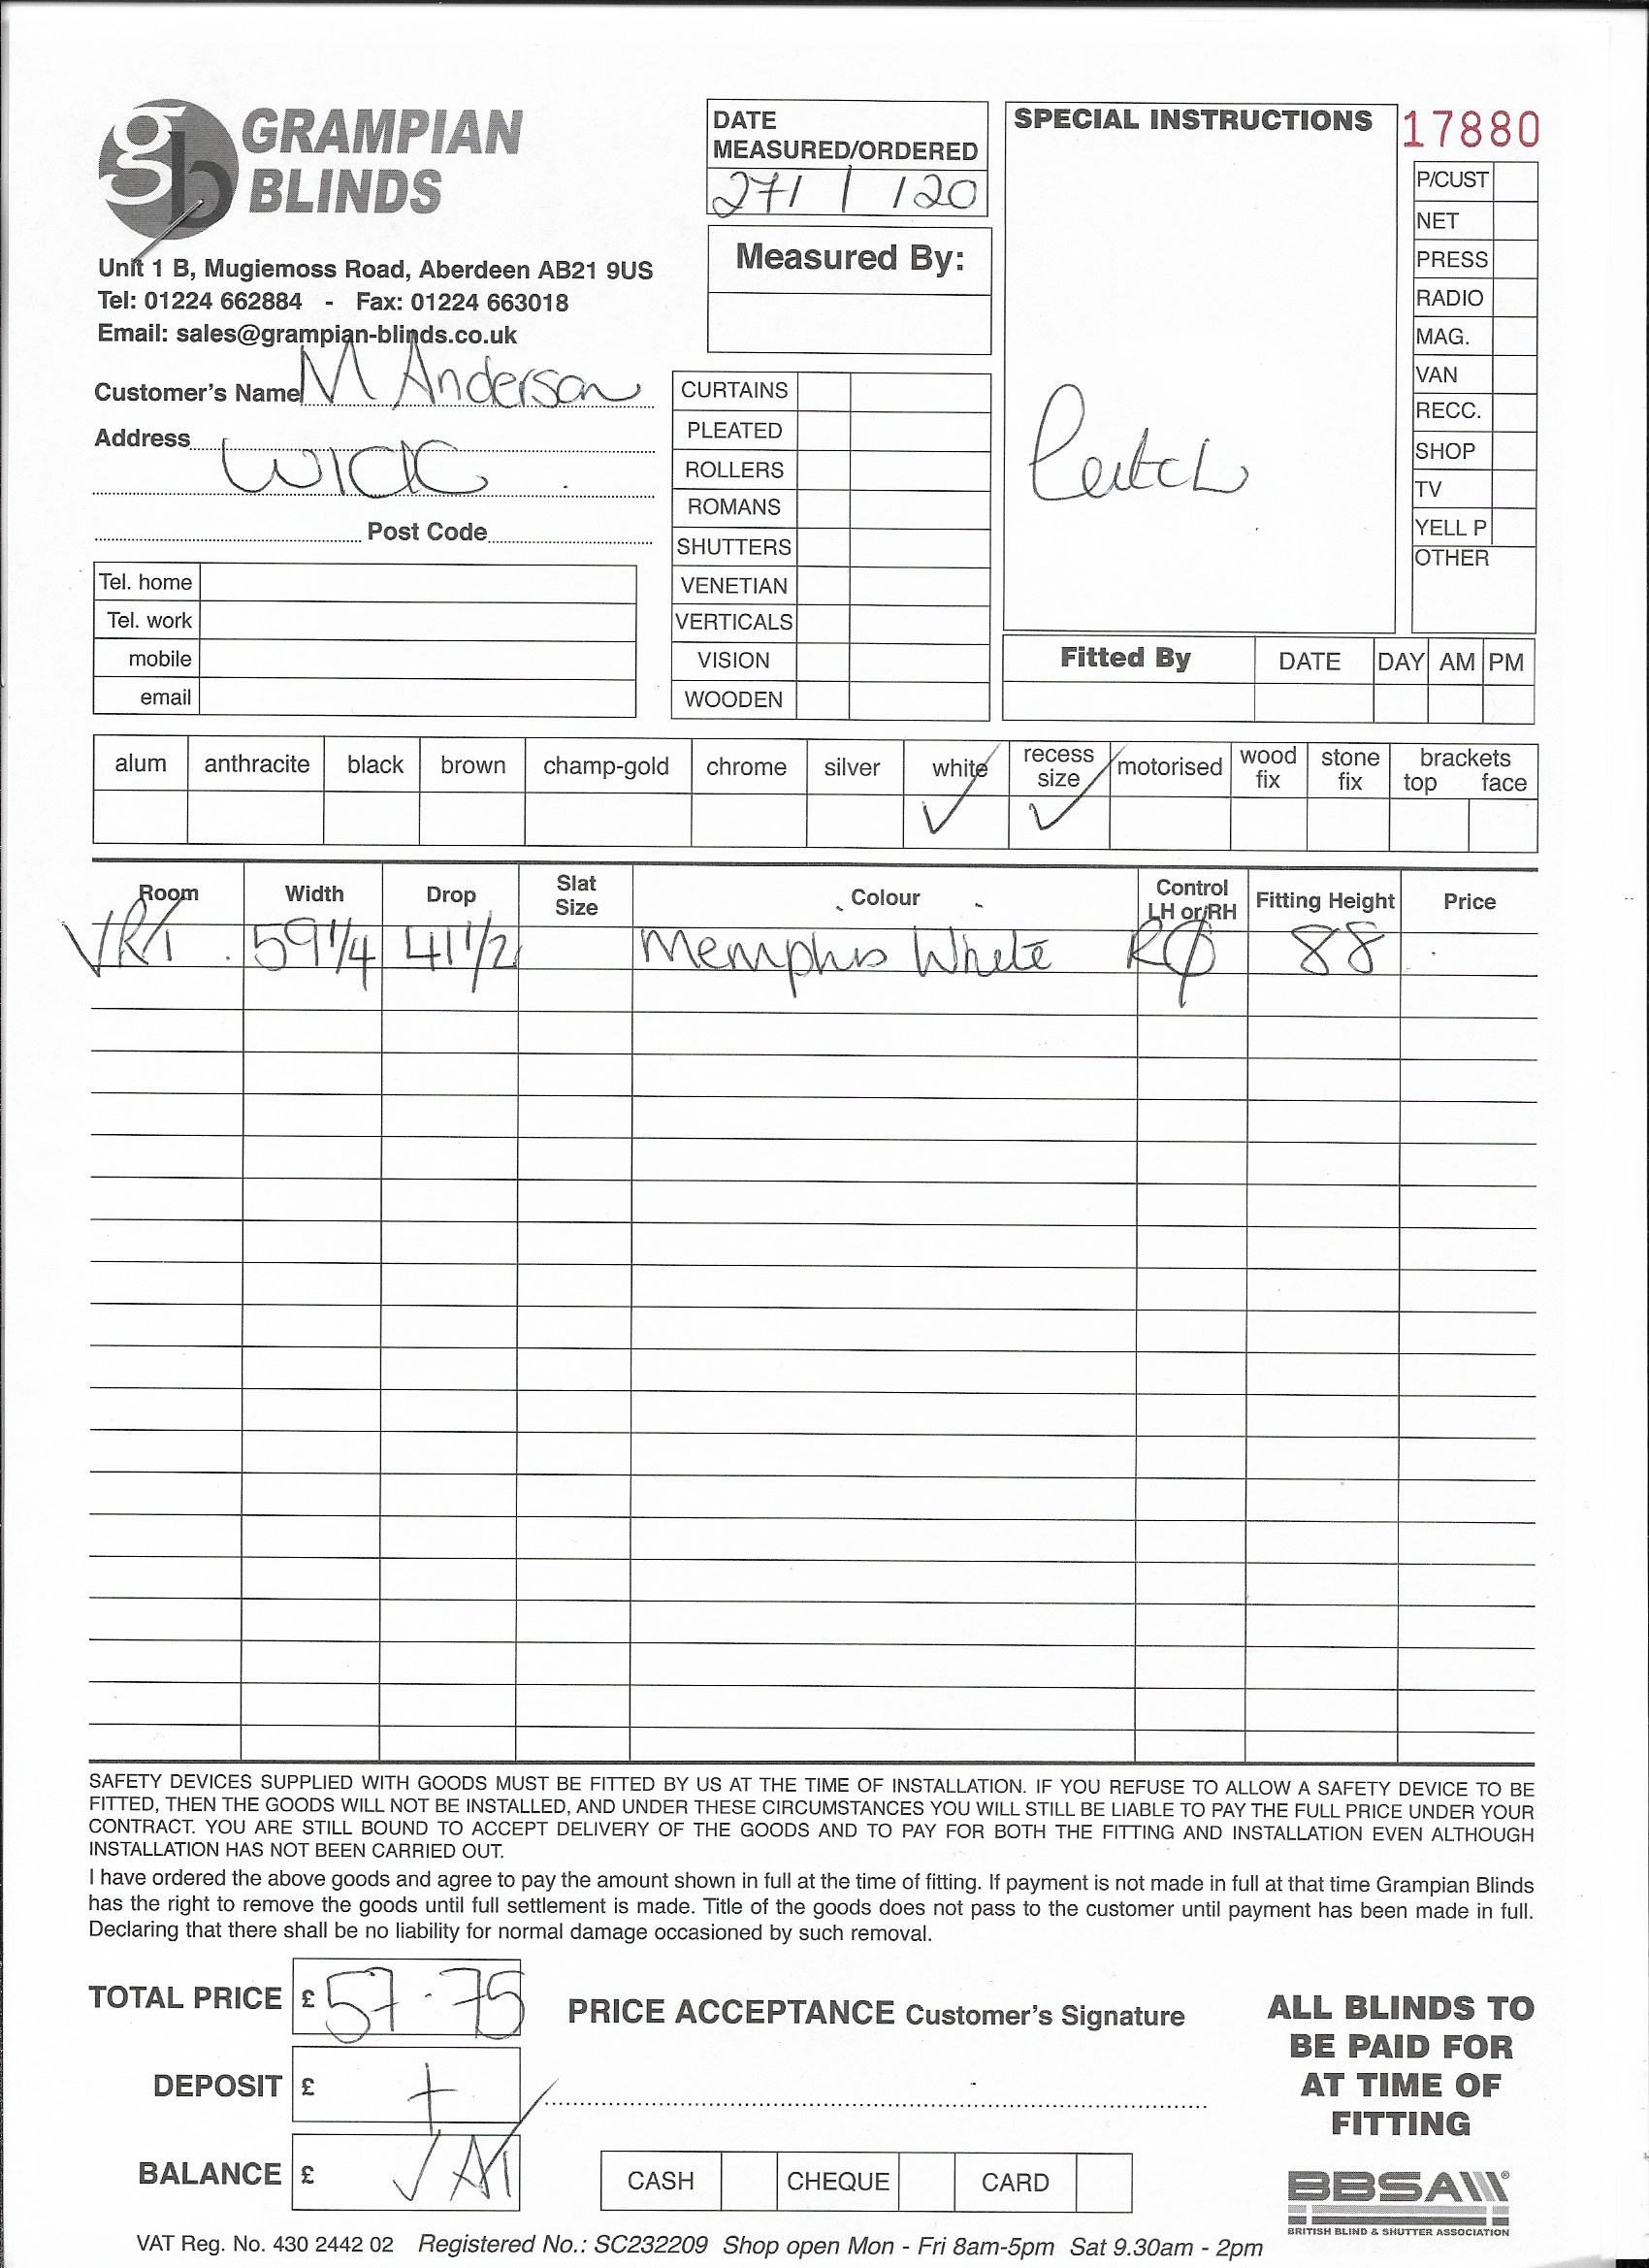 gb GRAMPIAN
BLINDS
Unit 1 B, Mugiemoss Road, Aberdeen AB21 9US
Tel: 01224 662884 - Fax: 01224 663018
Email: sales@grampian-blinds.co.uk
Customer's Name M Anderson
Address WICK
Post Code
Tel. home
Tel. work
mobile
email
DATE
MEASURED/ORDERED
27/1/20
Measured By:
CURTAINS
PLEATED
ROLLERS
ROMANS
SHUTTERS
VENETIAN
VERTICALS
VISION
WOODEN
SPECIAL INSTRUCTIONS
17880
P/CUST
NET
PRESS
RADIO
MAG.
VAN
RECC.
SHOP
TV
YELL P
OTHER
Fitted By DATE DAY AM PM
alum anthracite black brown champ-gold chrome silver white recess size motorised wood fix stone fix brackets top face
Room Width Drop Slat Size Colour Control LH or RH Fitting Height Price
59 1/4 41 1/2 Memphis White 88
SAFETY DEVICES SUPPLIED WITH GOODS MUST BE FITTED BY US AT THE TIME OF INSTALLATION. IF YOU REFUSE TO ALLOW A SAFETY DEVICE TO BE
FITTED, THEN THE GOODS WILL NOT BE INSTALLED, AND UNDER THESE CIRCUMSTANCES YOU WILL STILL BE LIABLE TO PAY THE FULL PRICE UNDER YOUR
CONTRACT. YOU ARE STILL BOUND TO ACCEPT DELIVERY OF THE GOODS AND TO PAY FOR BOTH THE FITTING AND INSTALLATION EVEN ALTHOUGH
INSTALLATION HAS NOT BEEN CARRIED OUT.
I have ordered the above goods and agree to pay the amount shown in full at the time of fitting. If payment is not made in full at that time Grampian Blinds
has the right to remove the goods until full settlement is made. Title of the goods does not pass to the customer until payment has been made in full.
Declaring that there shall be no liability for normal damage occasioned by such removal.
TOTAL PRICE £ 57.75
DEPOSIT £ +
BALANCE £ VAT
PRICE ACCEPTANCE Customer's Signature
CASH CHEQUE CARD
ALL BLINDS TO
BE PAID FOR
AT TIME OF
FITTING
BBSA
BRITISH BLIND & SHUTTER ASSOCIATION
VAT Reg. No. 430 2442 02 Registered No.: SC232209 Shop open Mon - Fri 8am-5pm Sat 9.30am - 2pm